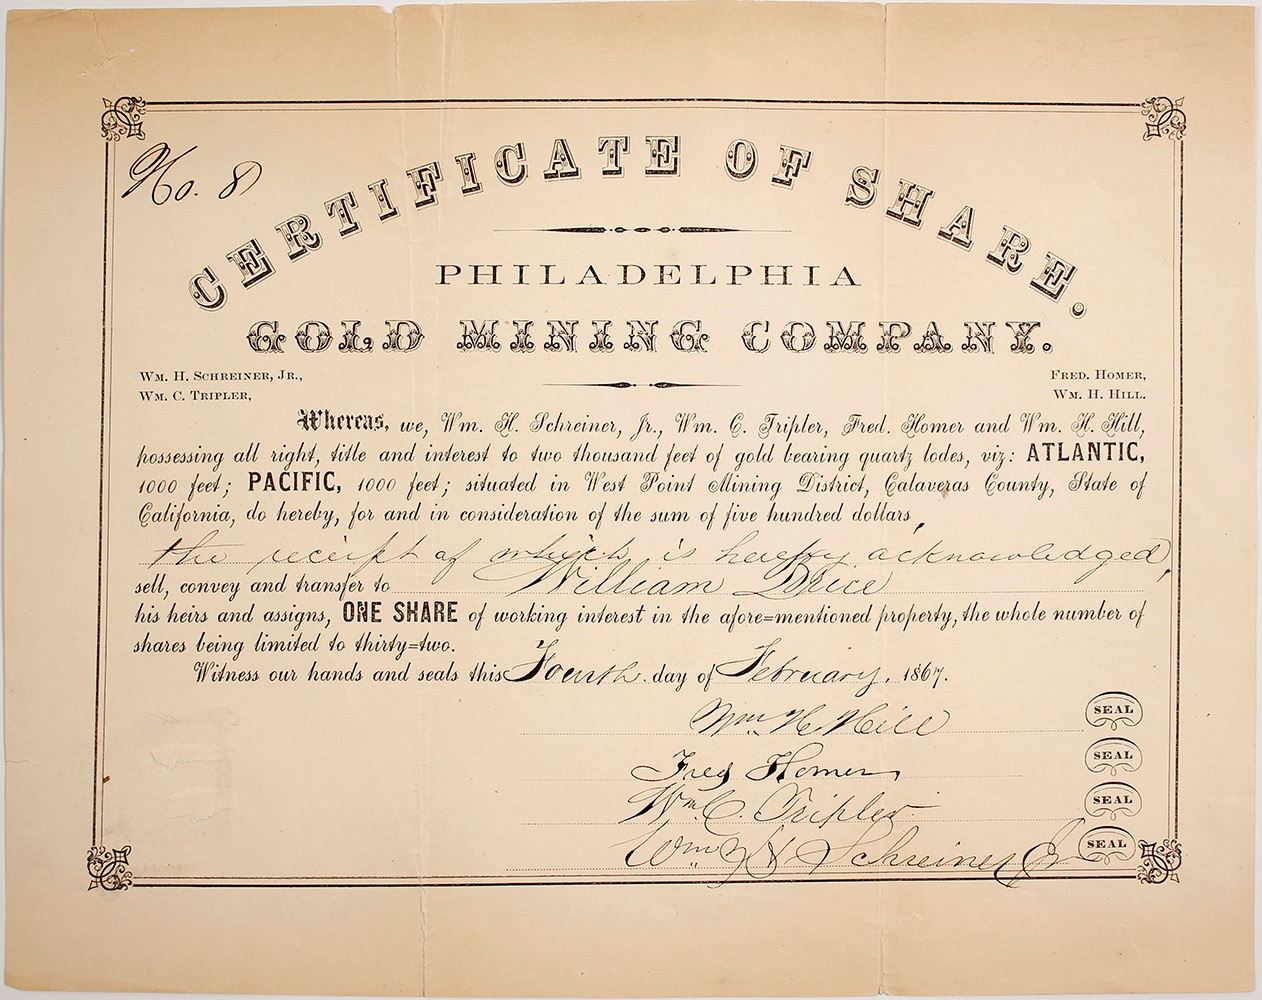 No. 8
CERTIFICATE OF SHARE.
PHILADELPHIA
GOLD MINING COMPANY.
WM. H. SCHREINER, JR.,
WM. C. TRIPLER,
FRED. HOMER,
WM. H. HILL.
Whereas, we, Wm. H. Schreiner, Jr., Wm. C. Tripler, Fred. Homer and Wm. H. Hill,
possessing all right, title and interest to two thousand feet of gold bearing quartz lodes, viz: ATLANTIC,
1000 feet; PACIFIC, 1000 feet; situated in West Point Mining District, Calaveras County, State of
California, do hereby, for and in consideration of the sum of five hundred dollars,
the receipt of which is hereby acknowledged,
sell, convey and transfer to William Price
his heirs and assigns, ONE SHARE of working interest in the afore=mentioned property, the whole number of
shares being limited to thirty=two.
Witness our hands and seals this Fourth day of February. 1867.
Wm H Hill SEAL
Fred Homer SEAL
Wm. C. Tripler SEAL
Wm H Schreiner Jr SEAL